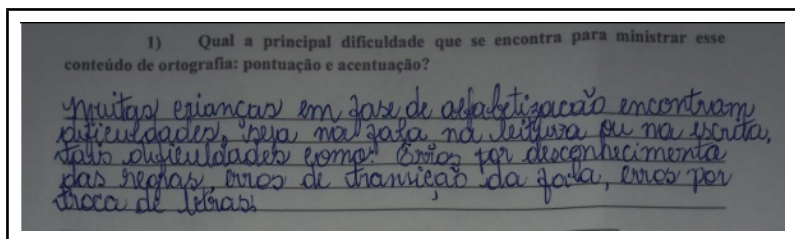 1) Qual a principal dificuldade que se encontra para ministrar esse
conteúdo de ortografia: pontuação e acentuação?
Muitas crianças em fase de alfabetização encontram
dificuldades, seja na fala na leitura ou na escrita,
tais dificuldades como: Erros por desconhecimento
das regras, erros de transição da fala, erros por
troca de letras.